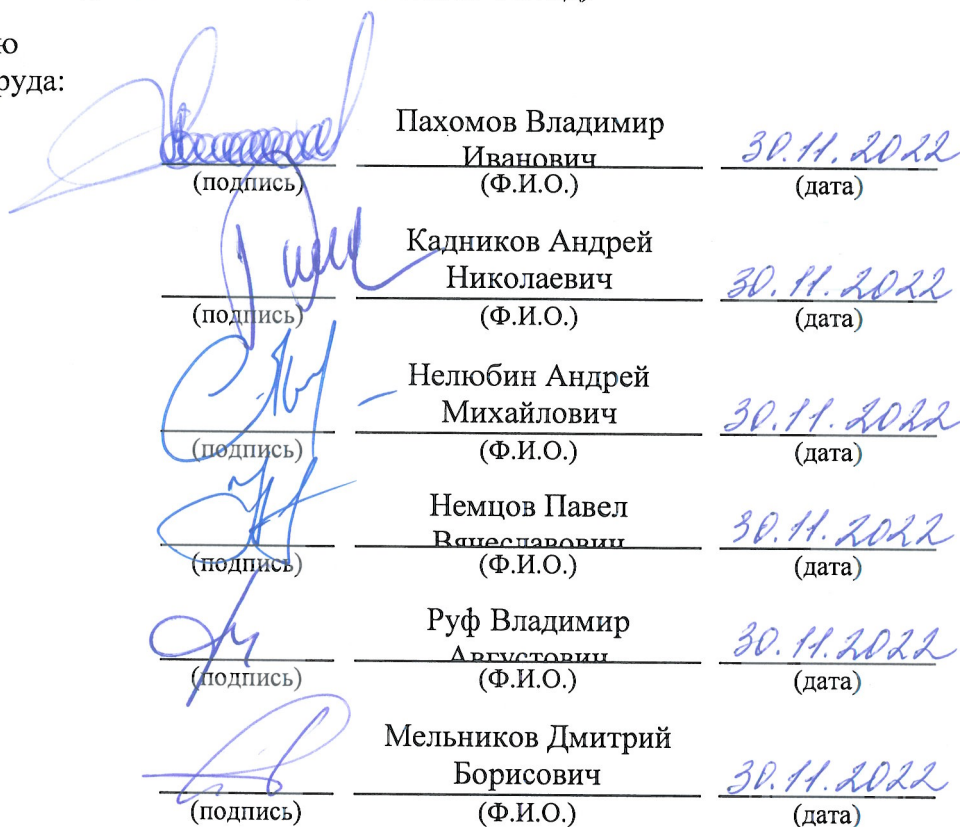 ю
руда:
Пахомов Владимир
Иванович
30.11.2022
(подпись) (Ф.И.О.) (дата)
Кадников Андрей
Николаевич
30.11.2022
(подпись) (Ф.И.О.) (дата)
Нелюбин Андрей
Михайлович
30.11.2022
(подпись) (Ф.И.О.) (дата)
Немцов Павел
Вячеславович
30.11.2022
(подпись) (Ф.И.О.) (дата)
Руф Владимир
Августович
30.11.2022
(подпись) (Ф.И.О.) (дата)
Мельников Дмитрий
Борисович
30.11.2022
(подпись) (Ф.И.О.) (дата)